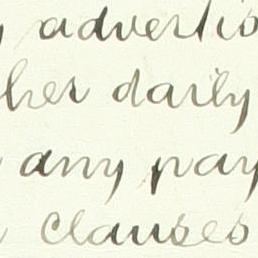 advertis
her daily
any pay
clauses